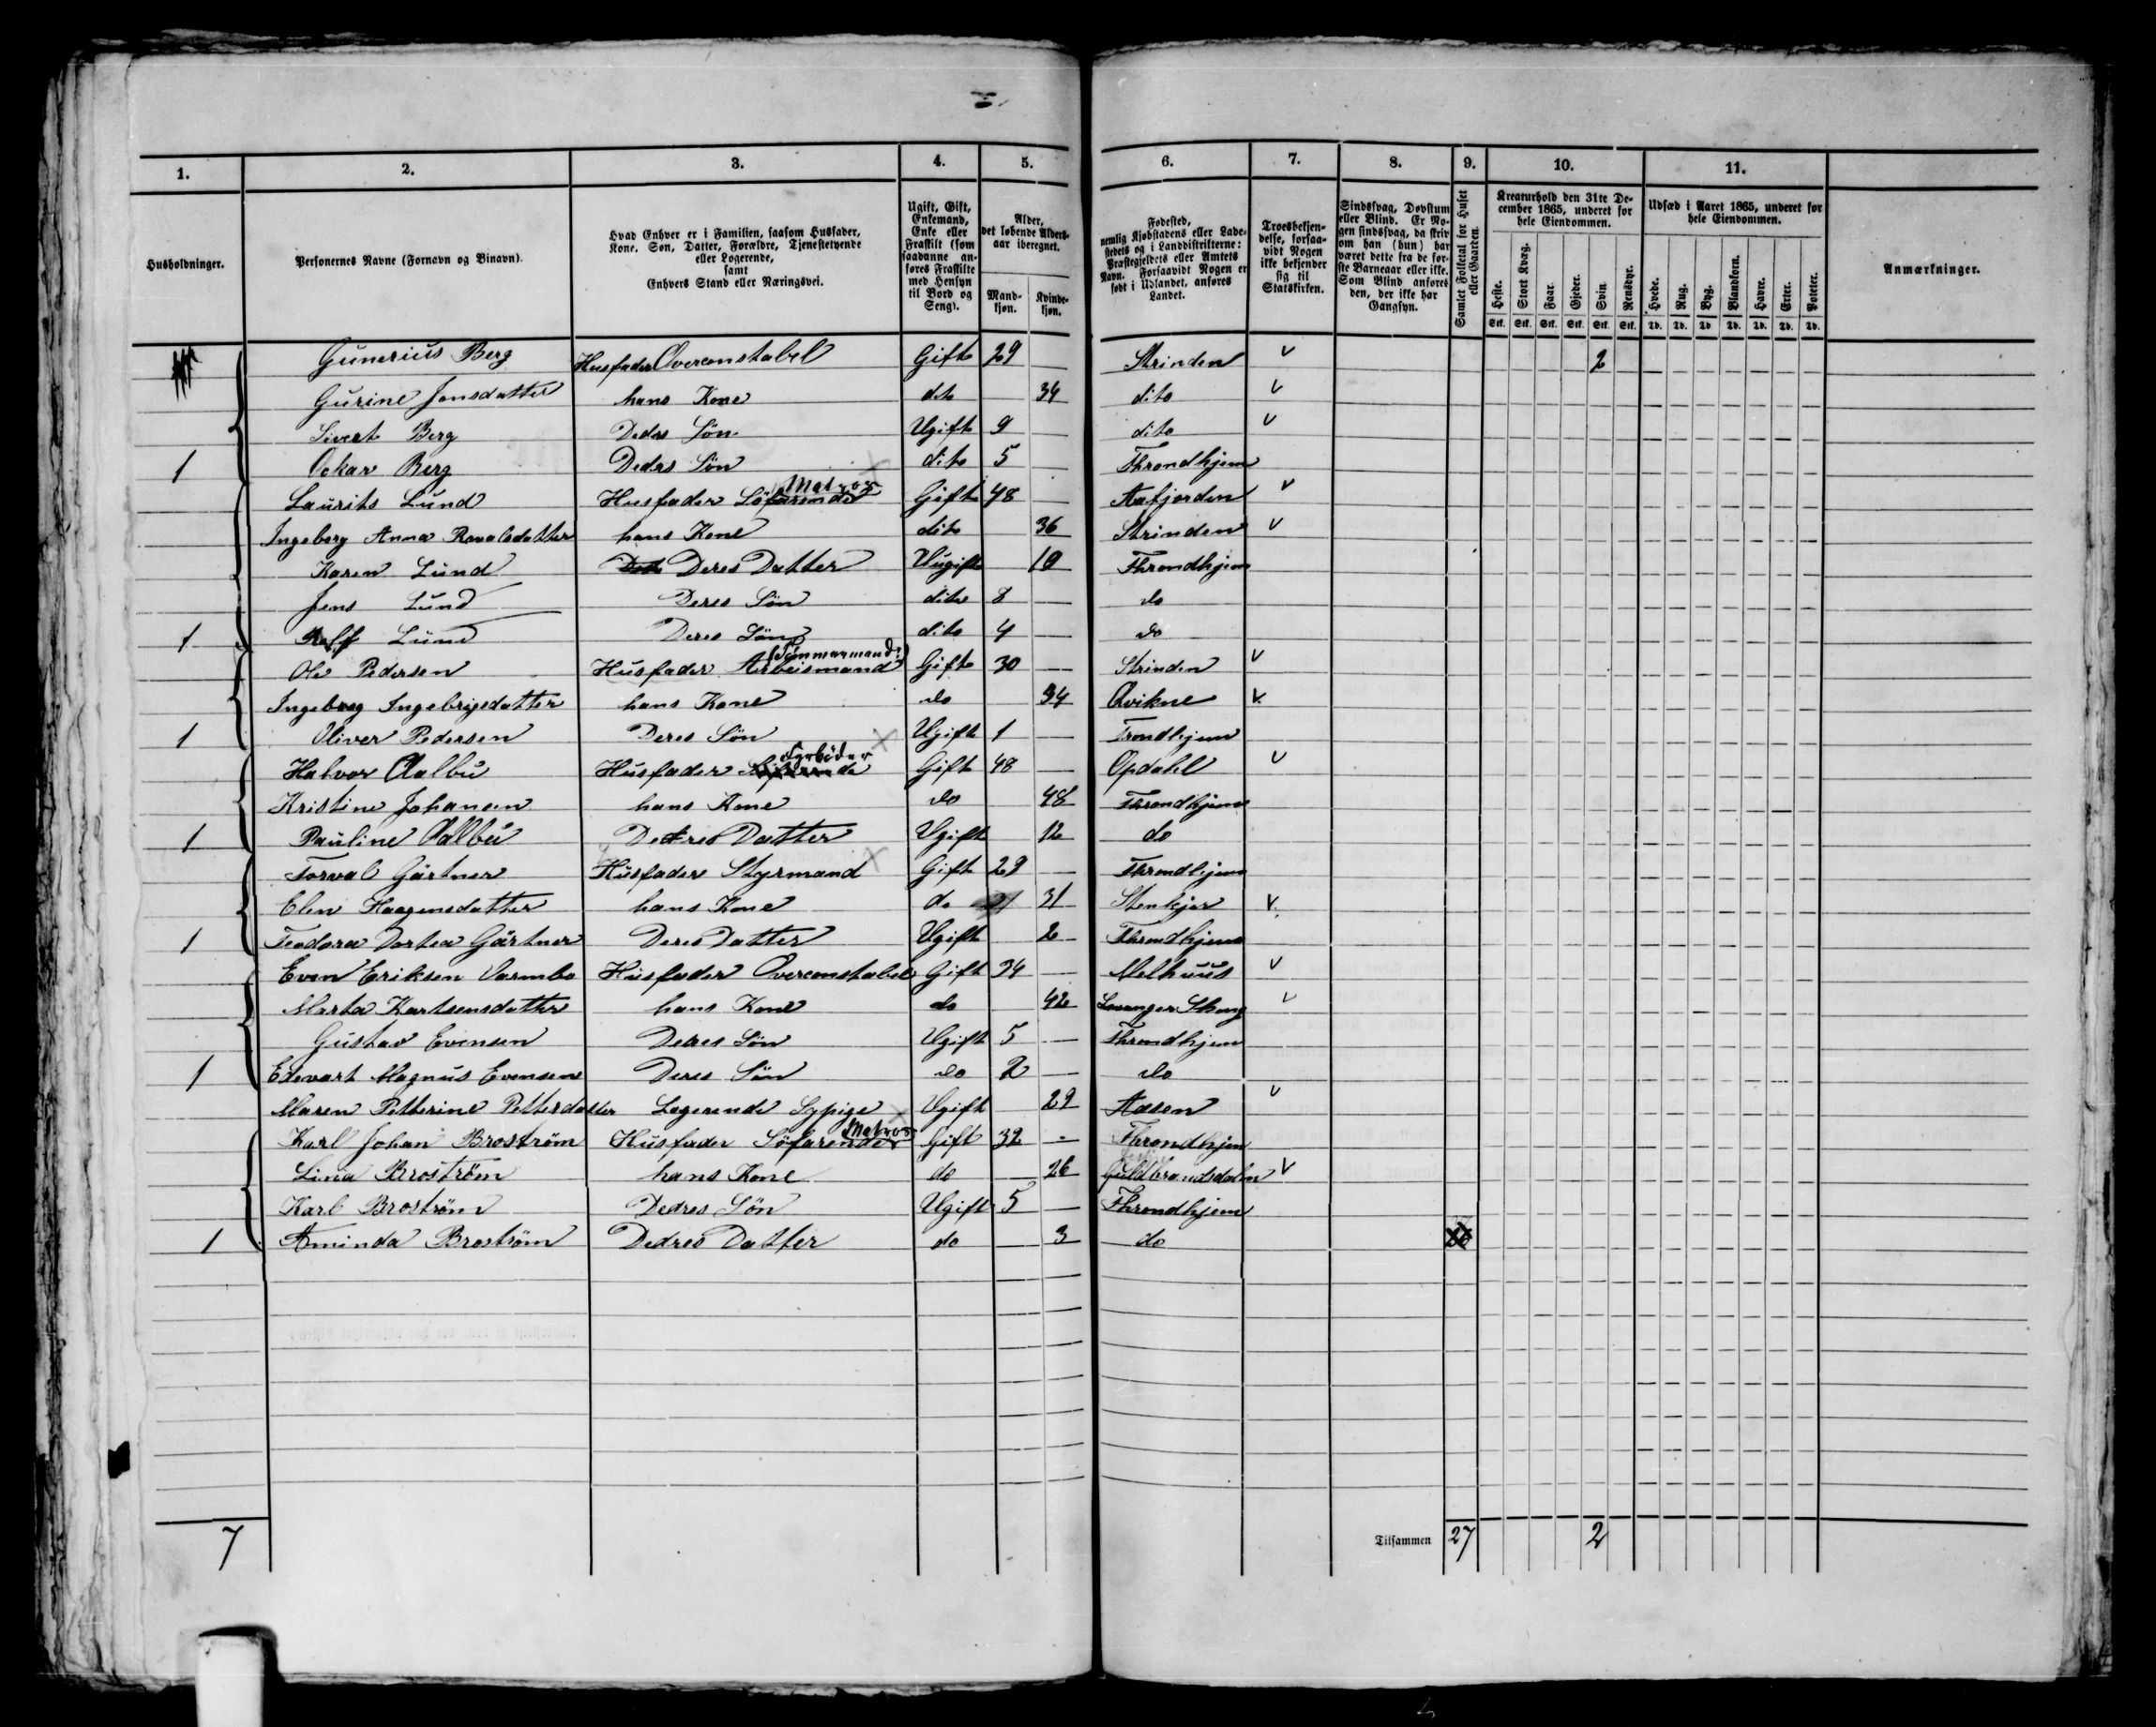 1. 2. 3. 4. 5. 6. 7. 8. 9. 10. 11.
Husholdninger.
Personernes Navne (Fornavn og Binavn).
Hvad Enhver er i Familien, saasom Husfader, Kone, Søn, Datter, Forældre, Tjenestetyende eller Logerende, samt Enhvers Stand eller Næringsvei.
Ugift, Gift, Enkemand, Enke eller Fraskilt (som saadanne anføres Fraskilte med Hensyn til Bord og Seng).
Alder, det løbende Alders-aar iberegnet.
Mand-kjøn. Kvinde-kjøn.
Fødested, nemlig Kjøbstadens eller Lade-stedets og i Landdistrikterne: Præstegjeldets eller Amtets Navn. Forsaavidt Nogen er født i Udlandet, anføres Landet.
Troesbekjen-delse, forsaa-vidt Nogen ikke bekjender sig til Statskirken.
Sindssvag, Døvstum eller Blind. Er No-gen sindssvag, da skriv om han (hun) har været dette fra de før-ste Barneaar eller ikke. Som Blind anføres den, der ikke har Gangsyn.
Samlet Folketal for Huset eller Gaarden.
Kreaturhold den 31te De-cember 1865, underet for hele Eiendommen.
Heste. Stort Kvæg. Faar. Gjeder. Svin. Rensdyr.
Stk. Stk. Stk. Stk. Stk. Stk.
Udsæd i Aaret 1865, underet for hele Eiendommen.
Hvede. Rug. Byg. Blandkorn. Havre. Erter. Poteter.
Td. Td. Td. Td. Td. Td. Td.
Anmærkninger.
Gunerius Berg Husfader Overconstabel Gift 29 Strinden v 2
Gurine Jonsdatter hans Kone dito 34 dito v
Sivert Berg Deders Søn Ugift 9 dito v
1 Ockar Berg Deders Søn dito 5 Throndhjem
Laurits Lund Husfader Søfarende Matros Gift 48 Aafjorden v
Ingeborg Anna Ravalsdatter hans Kone dito 36 Strinden v
Karen Lund Deres Datter Uugift 10 Throndhjem
Jens Lund Deres Søn dito 8 do
1 Rolf Lund Deres Søn dito 4 do
Ole Pedersen Husfader Arbeismand (Tømmermand?) Gift 30 Strinden v
Ingeborg Ingebrigsdatter hans Kone do 34 Qvikne v.
1 Oliver Pedersen Deres Søn Ugift 1 Trondhjem
Halvor Aalbu Husfader Gift 48 Opdahl v
Kristine Johansen hans Kone do 48 Throndhjem
1 Pauline Aalbu Dedres Datter Ugift 12 do
Torval Gärtner Husfader Styrmand Gift 29 Throndhjem
Elen Haagensdatter hans Kone do 31 Stenkjer v.
1 Teodora Dortea Gärtner Deres Datter Ugift 2 Throndhjem
Even Eriksen Varmbo Husfader Overconstabel Gift 34 Melhuus v
Marta Kartsensdatter hans Kone do 42 Levanger Skong v
Gustav Evensen Deres Søn Ugift 5 Throndhjem
1 Edevart Magnus Evensen Deres Søn do 2 do
Maren Petterine Petterdatter Logerende Sypige Ugift 29 Aasen v
Karl Johan Broström Husfader Søfarende Matros Gift 32 Throndhjem
Lina Broström hans Kone do 26 Guldbrandsdalen v
Karl Broström Dedres Søn Ugift 5 Throndhjem
1 Aminda Broström Dedres Datter do 3 do
7 Tilsammen 27 2